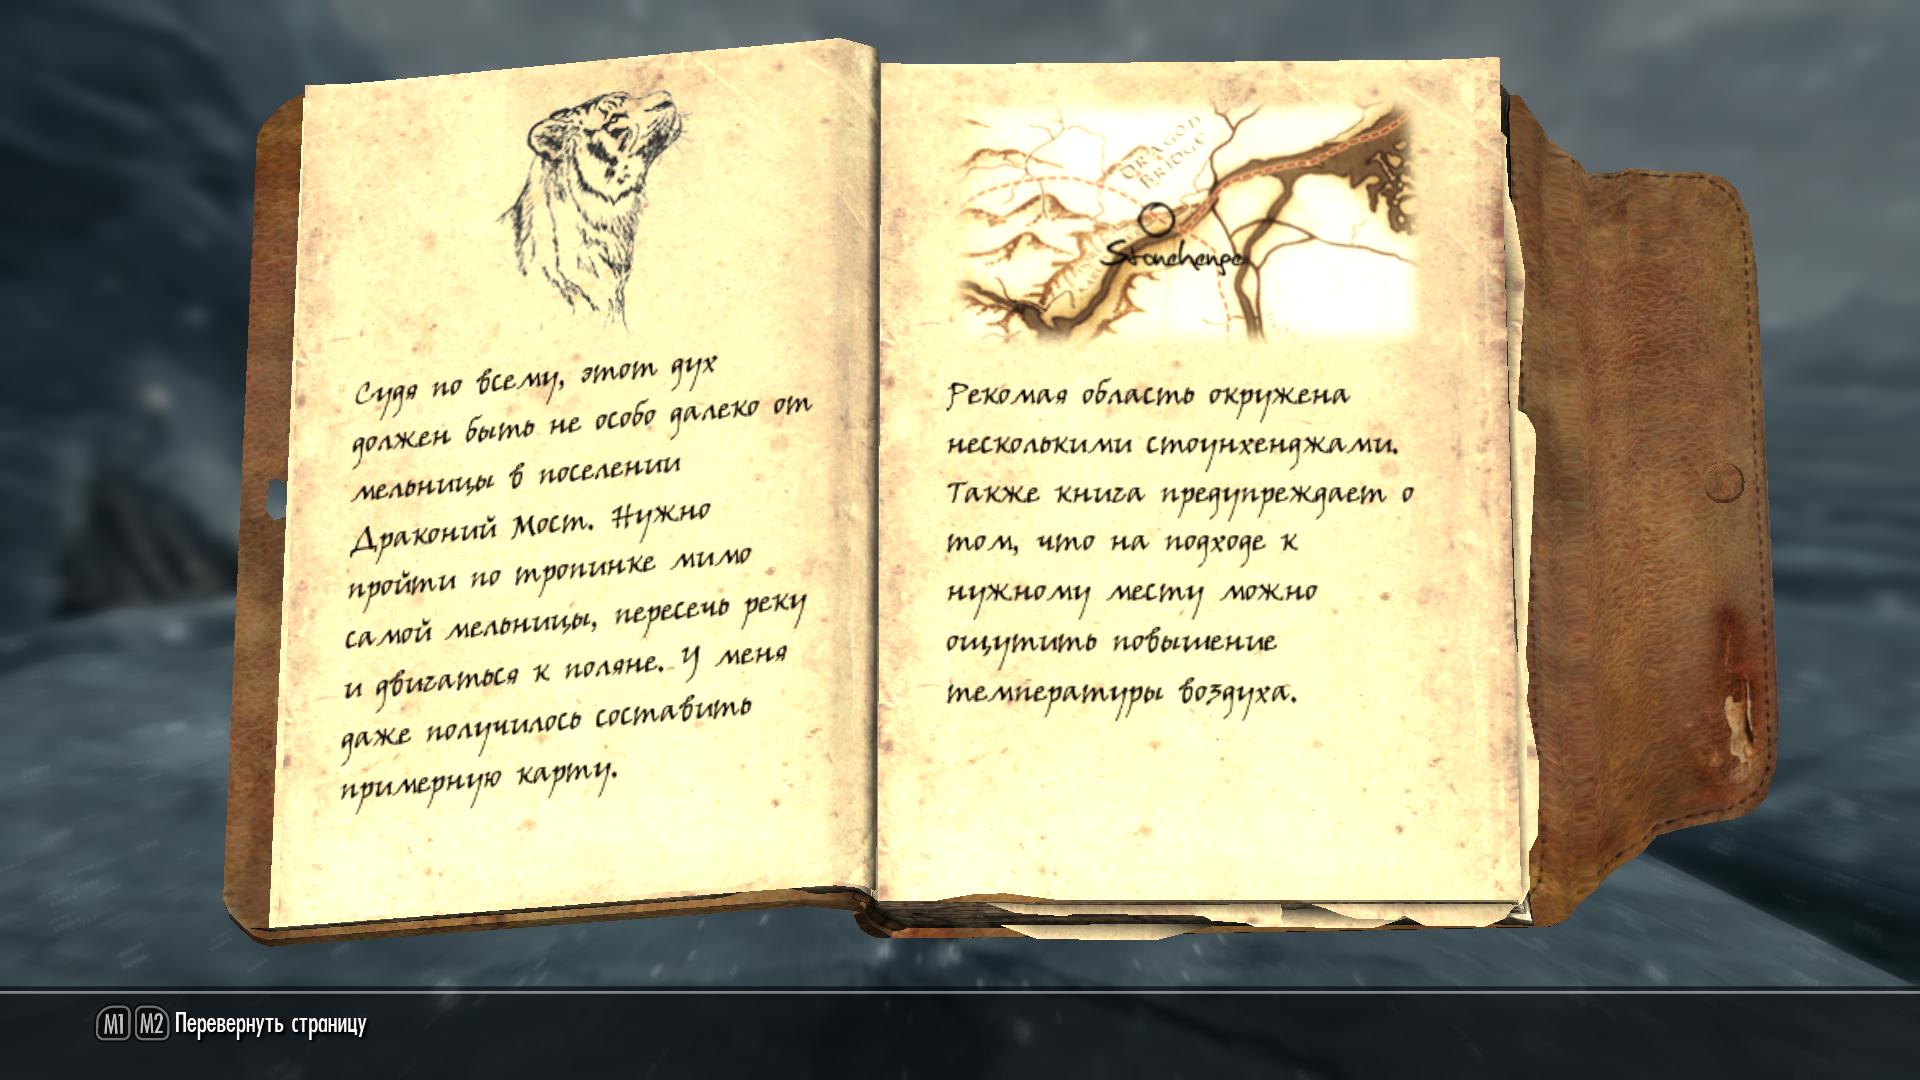 Судя по всему, этот дух
должен быть не особо далеко от
мельницы в поселении
Драконий Мост. Нужно
пройти по тропинке мимо
самой мельницы, пересечь реку
и двигаться к поляне. У меня
даже получилось составить
примерную карту.
DRAGON
BRIDGE
Stonehenge
Рекомая область окружена
несколькими стоунхенджами.
Также книга предупреждает о
том, что на подходе к
нужному месту можно
ощутить повышение
температуры воздуха.
M1 M2 Перевернуть страницу